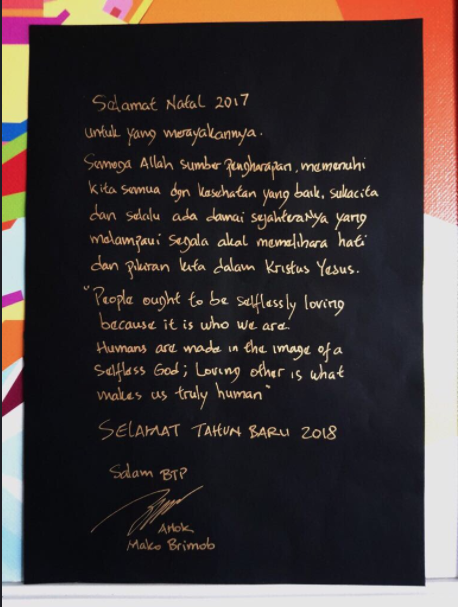 Selamat Natal 2017
untuk yang merayakannya.
Semoga Allah sumber pengharapan, memenuhi
kita semua dgn kesehatan yang baik, sukacita
dan selalu ada damai sejahteraNya yang
melampaui segala akal memelihara hati
dan pikiran kita dalam Kristus Yesus.
"People ought to be selflessly loving
because it is who we are.
Humans are made in the image of a
Selfless God; Loving other is what
makes us truly human"
SELAMAT TAHUN BARU 2018
Salam BTP
AHok
Mako Brimob